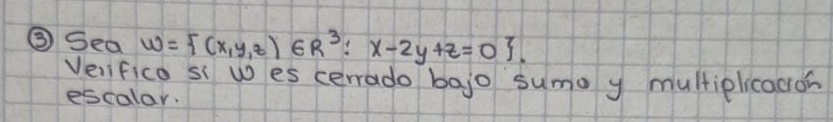 ③ Sea W = {(x,y,z) ∈ R³: x-2y+z=0}.
Verifico si W es cerrado bajo suma y multiplicación
escalar.